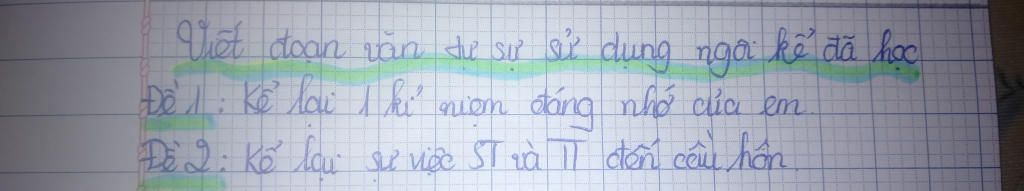 Viết đoạn văn tự sự sử dụng ngôi kể đã học
Đề 1: Kể lại 1 kỉ niệm đáng nhớ của em.
Đề 2: Kể lại sự việc ST và TT đến cầu hôn